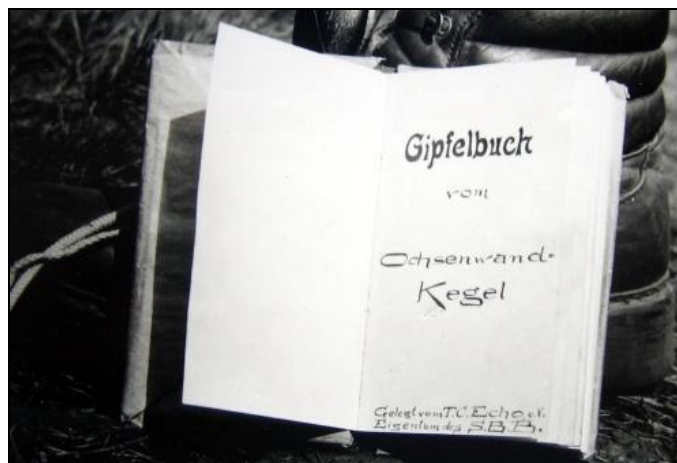 Gipfelbuch
vom
Ochsenwand-
Kegel
Gelegt vom T.C. Echo e.V.
Eigentum des S.B.B.